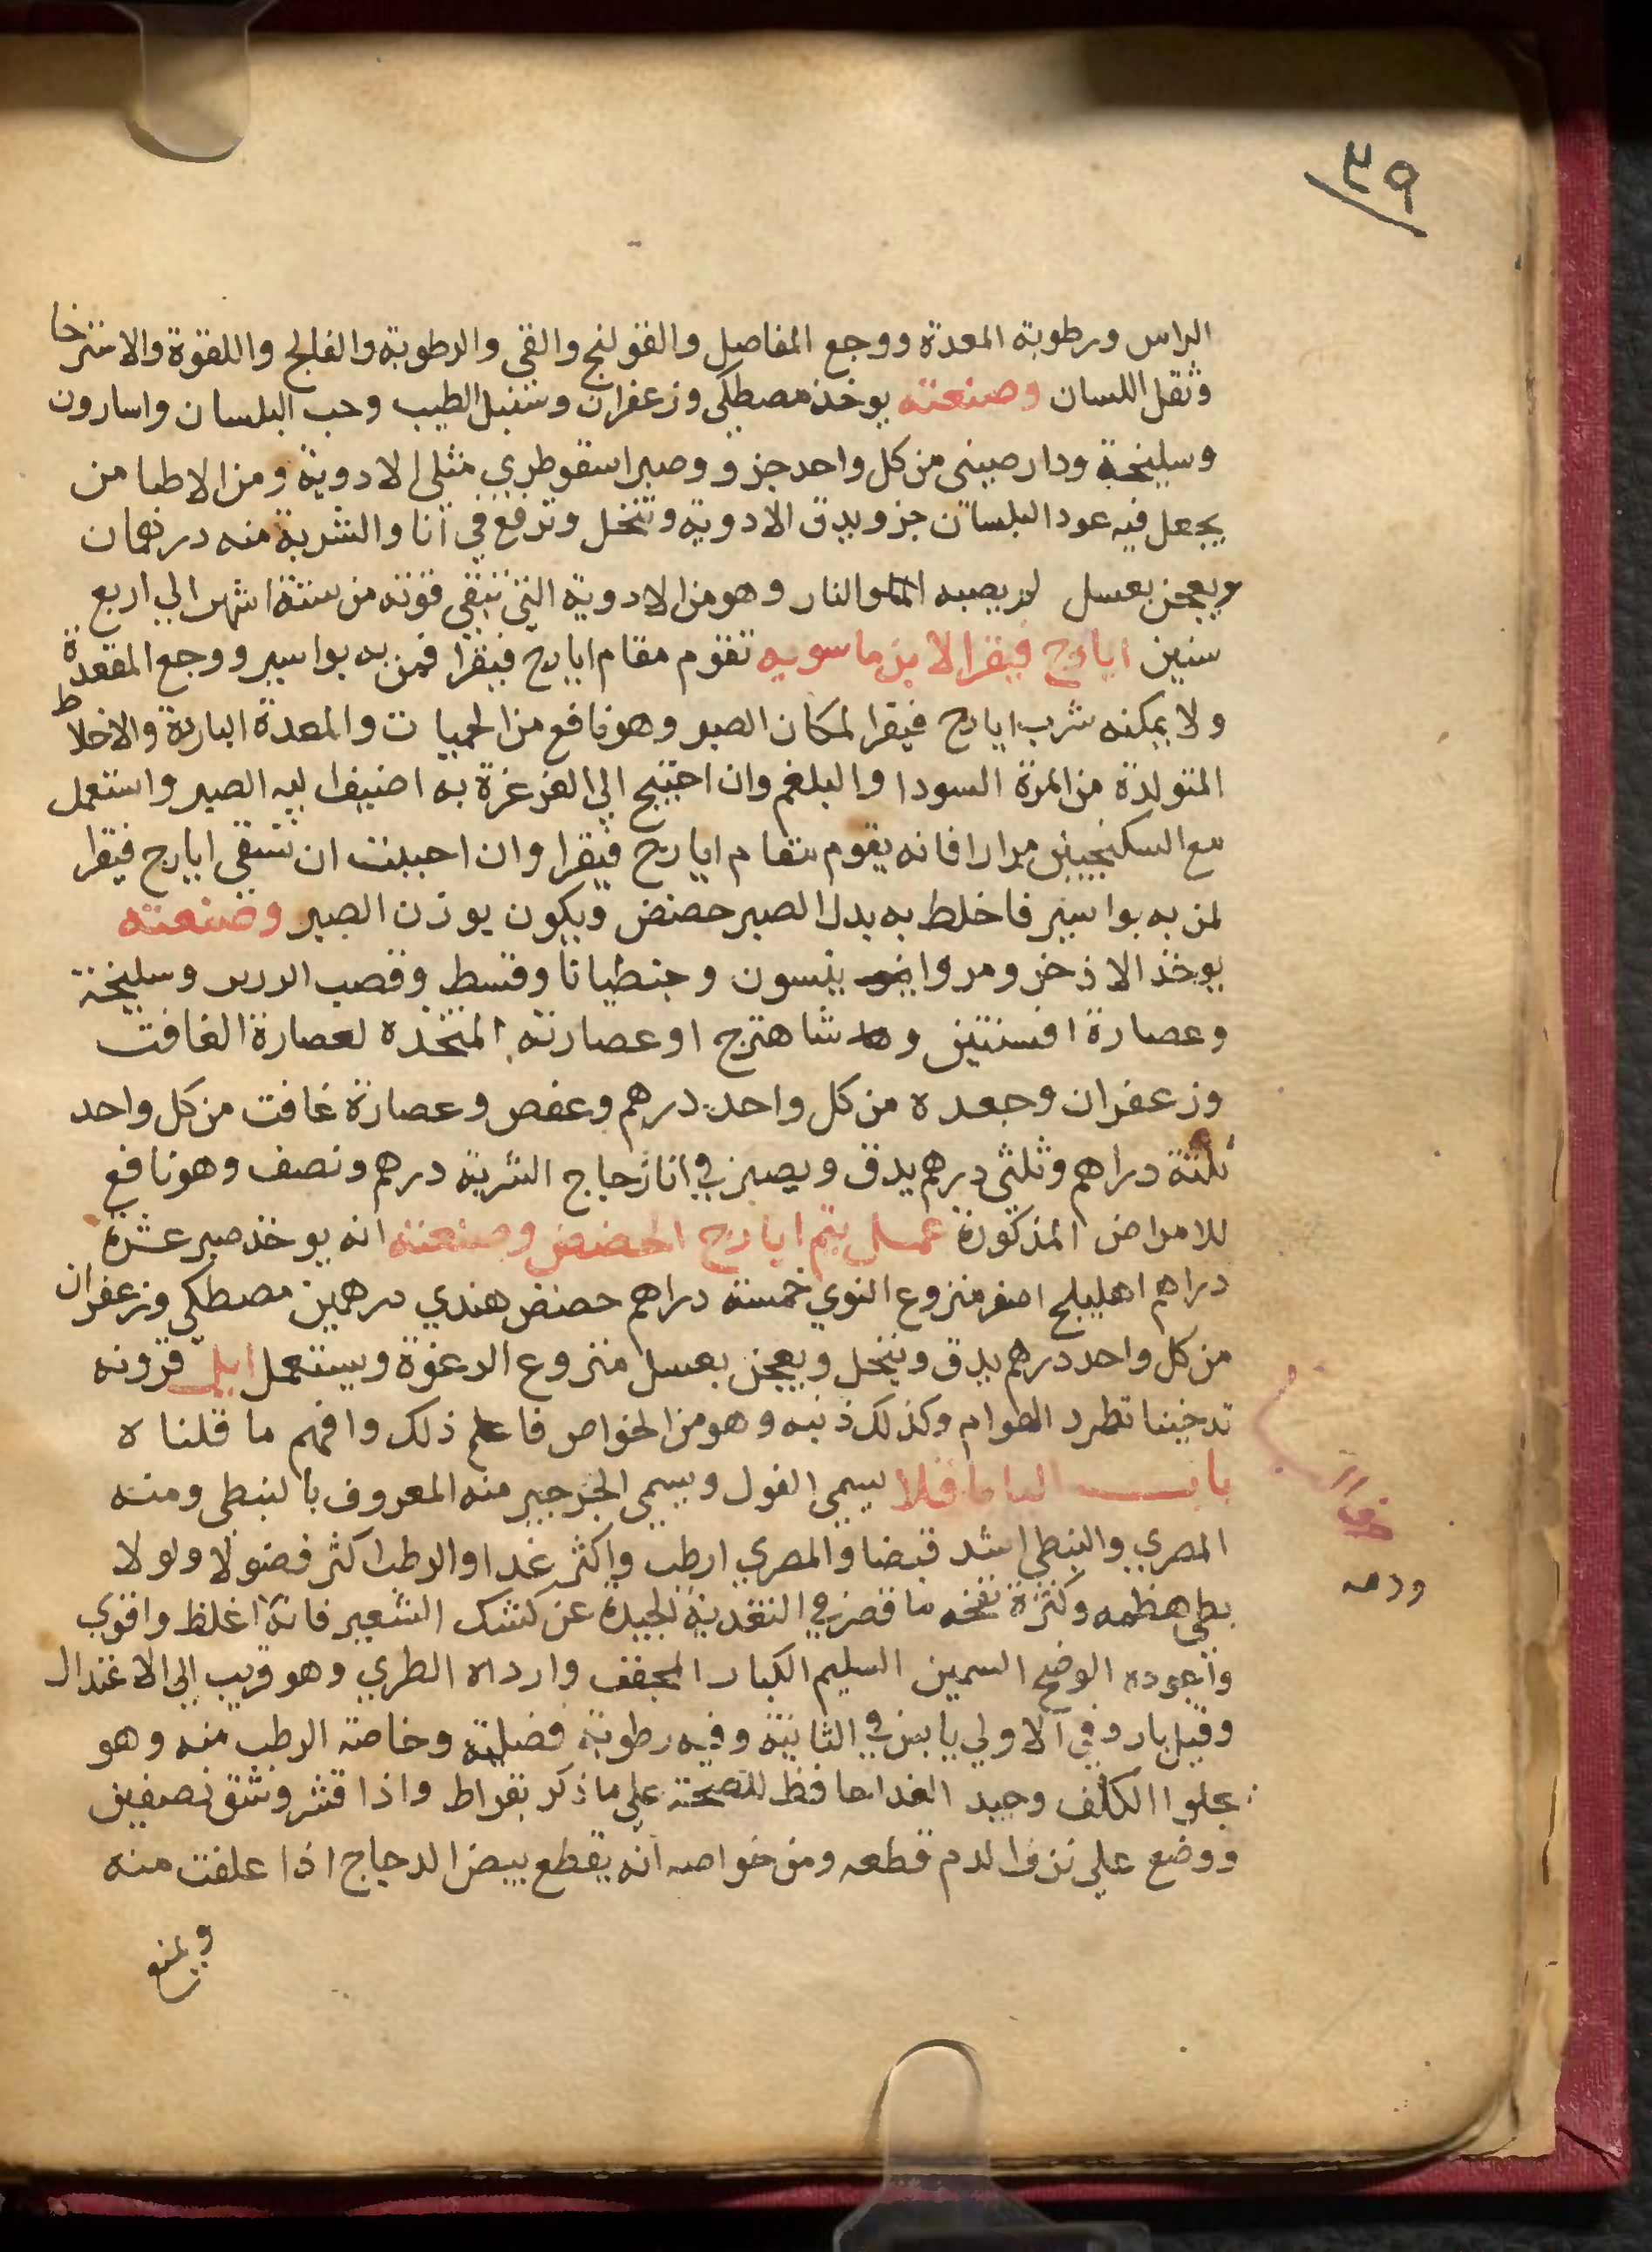 ٤٩
الراس ورطوبة المعدة ووجع المفاصل والقولنج والقى والرطوبة والفالج واللقوة والاسترخا
وثقل اللسان وصنعته يوخذ مصطكى وزعفران وسنبل الطيب وحب البلسان واسارون
وسليخة ودار صينى من كل واحد جزو وصبر اسقوطري مثلى الادوية ومن الاطبا من
يجعل فيه عود البلسان جزو يدق الادوية وتنخل وترفع في انا والشربة منه درهمان
ويعجن بعسل لم يصبه الما والنار وهو من الادوية التى تبقى قوته من ستة اشهر الي اربع
سنين ايارج فيقرا لابن ماسويه تقوم مقام ايارج فيقرا فمن به بواسير ووجع المقعدة
ولا يمكنه شرب ايارج فيقرا لمكان الصبر وهو نافع من الحميات والمعدة الباردة والاخلاط
المتولدة من المرة السودا والبلغم وان احتيج الي الغرغرة به اضيف ليه الصبر واستعمل
مع السكنجبين مرارا فانه يقوم مقام ايارج فيقرا وان احببت ان تسقى ايارج فيقرا
لمن به بواسير فاخلط به بدل الصبر حضض ويكون بوزن الصبر وصنعته
يوخذ الاذخر ومر وا ينسون وجنطيانا وقسط وقصب الدرىر وسليخة
وعصارة افسنتين و شاهترج او عصارته المتخذه لعصارة الغافت
وزعفران وجعده من كل واحد درهم وعفص وعصارة غافت من كل واحد
ثلثة دراهم وثلثى درهم يدق ويصير في انا زجاج الشربة درهم ونصف وهو نافع
للامراض المذكورة عمل يتم ايارج الحضض وصنعته انه يوخذ صبر عشرة
دراهم اهليلج اصفر منزوع النوي خمسة دراهم حضض هندي درهمين مصطكى وزعفران
من كل واحد درهم يدق وينخل ويعجن بعسل منزوع الرغوة ويستعمل ايل قرونه
تدخينا تطرد الهوام وكذلك ذنبه وهو من الخواص فاعلم ذلك وافهم ما قلناه
باب الباقلا يسمى الفول ويسمى الجرجير منه المعروف بالنبطى ومنه
المصري والنبطى اشد قبضا والمصري ارطب واكثر غدا والرطب اكثر فضولا ولولا
بطى هظمه وكثرة نفخه ما قصر في التغدية الجيدة عن كشك الشعير فانه اغلظ واقوي
واجوده الوضح السمين السليم الكبار المجفف وارداه الطري وهو قريب الي الاعتدال
وقيل بارد في الاولي يابس في الثانية وفيه رطوبة فضلية وخاصة الرطب منه وهو
يجلوا الكلف وجيد الغدا حافظ للصحة على ما ذكر بقراط واذا قشر وشق نصفين
ووضع علي نزف الدم قطعه ومن خواصه انه يقطع بيض الدجاج اذا علفت منه
ويمنع